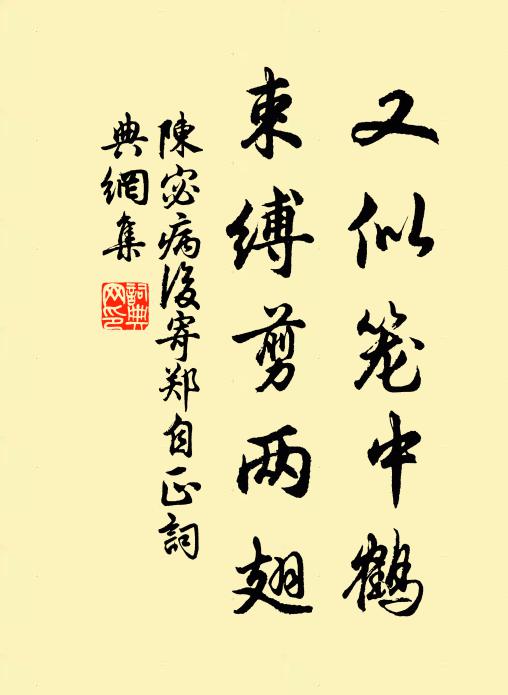 又似笼中鹤
束缚剪两翅
陳宓病後寄郑自正詞
典網集
詞典
网印